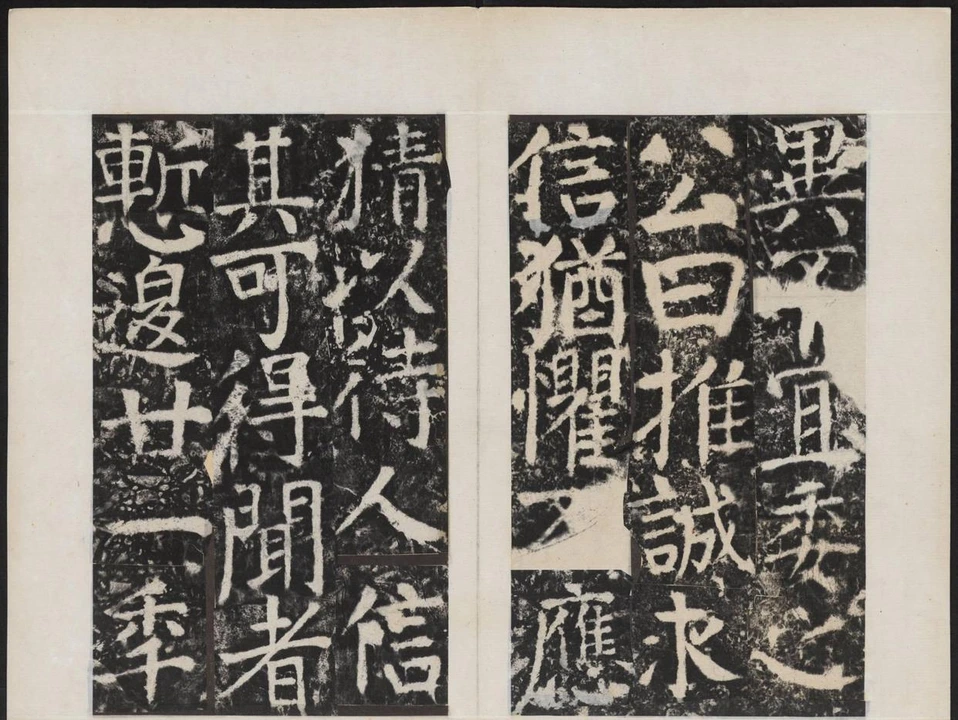 異不宜委之
公曰推誠求
信猶懼不應
猜以待人信
其可得聞者
慙退廿一秊